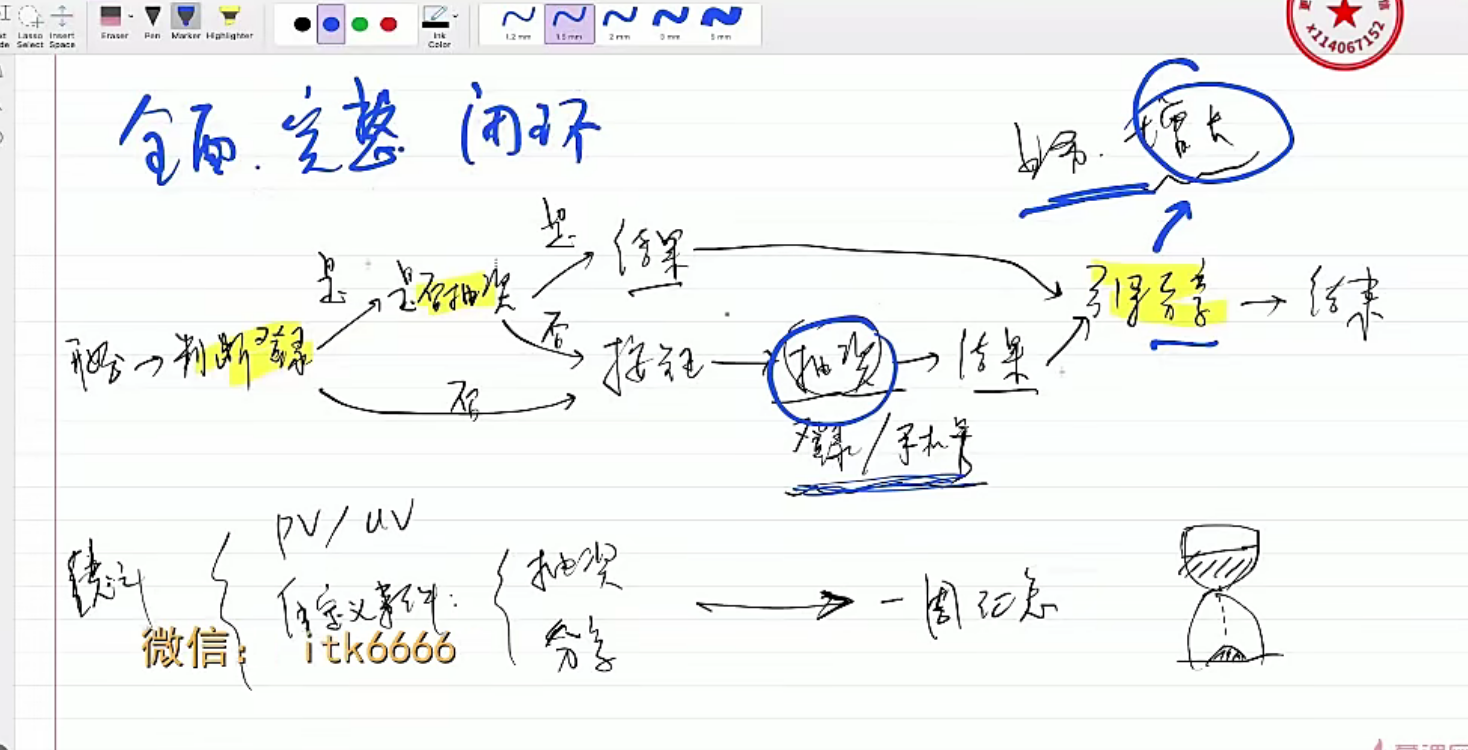 Lasso Select
Insert Space
Eraser
Pen
Marker
Highlighter
Ink Color
1.2 mm
1.5 mm
2 mm
3 mm
5 mm
x114067152
全面、完整 闭环
增长
是 是否抽奖 是 结果
引导分享 → 结束
→ 判断登录
否
否 按钮 → 抽奖 → 结果
登录/手机号
统计
PV/UV
自定义事件:
抽奖
分享
一周汇总
微信: itk6666